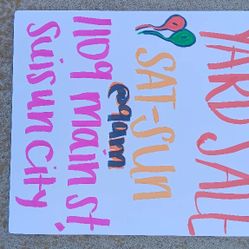 YARD SALE
SAT-SUN
@9am
1109 main st,
Suisun City